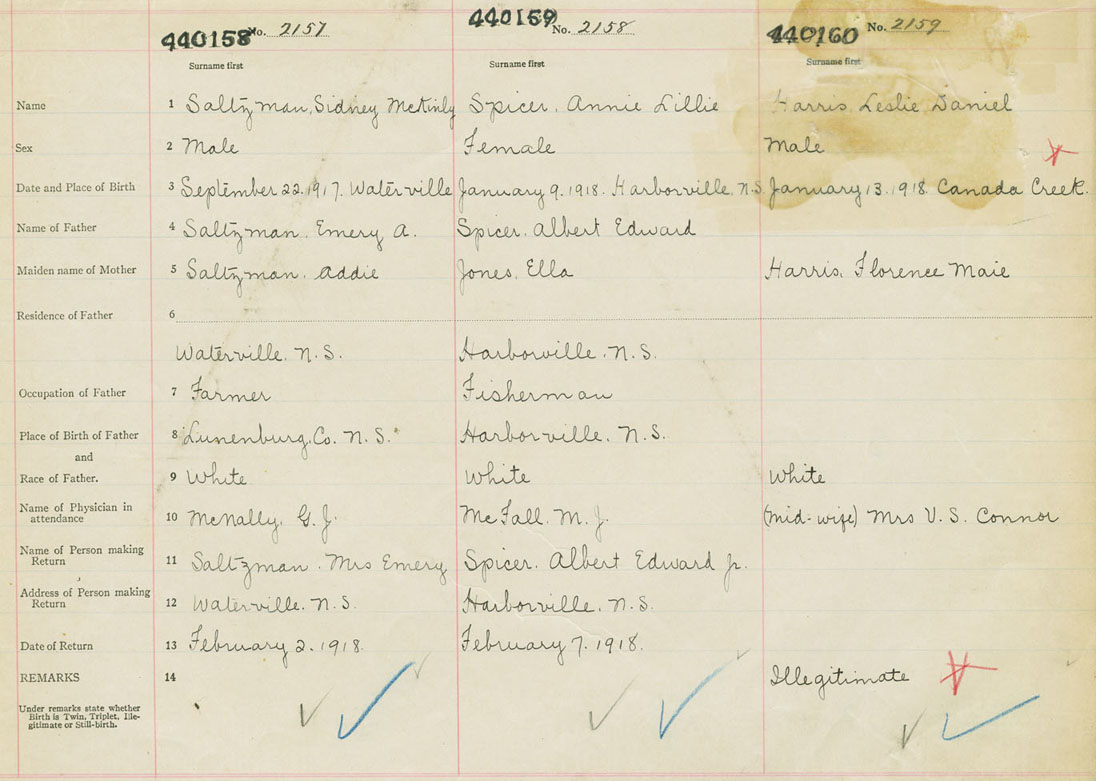 440158 No. 2157 440159 No. 2158 440160 No. 2159
Surname first Surname first Surname first
Name 1 Saltzman, Sidney McKinly Spicer, Annie Lillie Harris, Leslie Daniel
Sex 2 Male Female Male
Date and Place of Birth 3 September 22. 1917. Waterville January 9. 1918. Harborville, N.S. January 13. 1918. Canada Creek.
Name of Father 4 Saltzman, Emery A. Spicer, Albert Edward
Maiden name of Mother 5 Saltzman, Addie Jones, Ella Harris, Florence Maie
Residence of Father 6
Waterville. N.S. Harborville. N.S.
Occupation of Father 7 Farmer Fisherman
Place of Birth of Father 8 Lunenburg, Co. N.S. Harborville. N.S.
and
Race of Father. 9 White White White
Name of Physician in
attendance 10 McNally, G. J. McFall. M. J. (mid-wife) Mrs V. S. Connor
Name of Person making
Return 11 Saltzman. Mrs Emery Spicer. Albert Edward Jr.
Address of Person making
Return 12 Waterville. N.S. Harborville. N.S.
Date of Return 13 February 2. 1918. February 7. 1918.
REMARKS 14 Illegitimate
Under remarks state whether
Birth is Twin, Triplet, Ille-
gitimate or Still-birth.